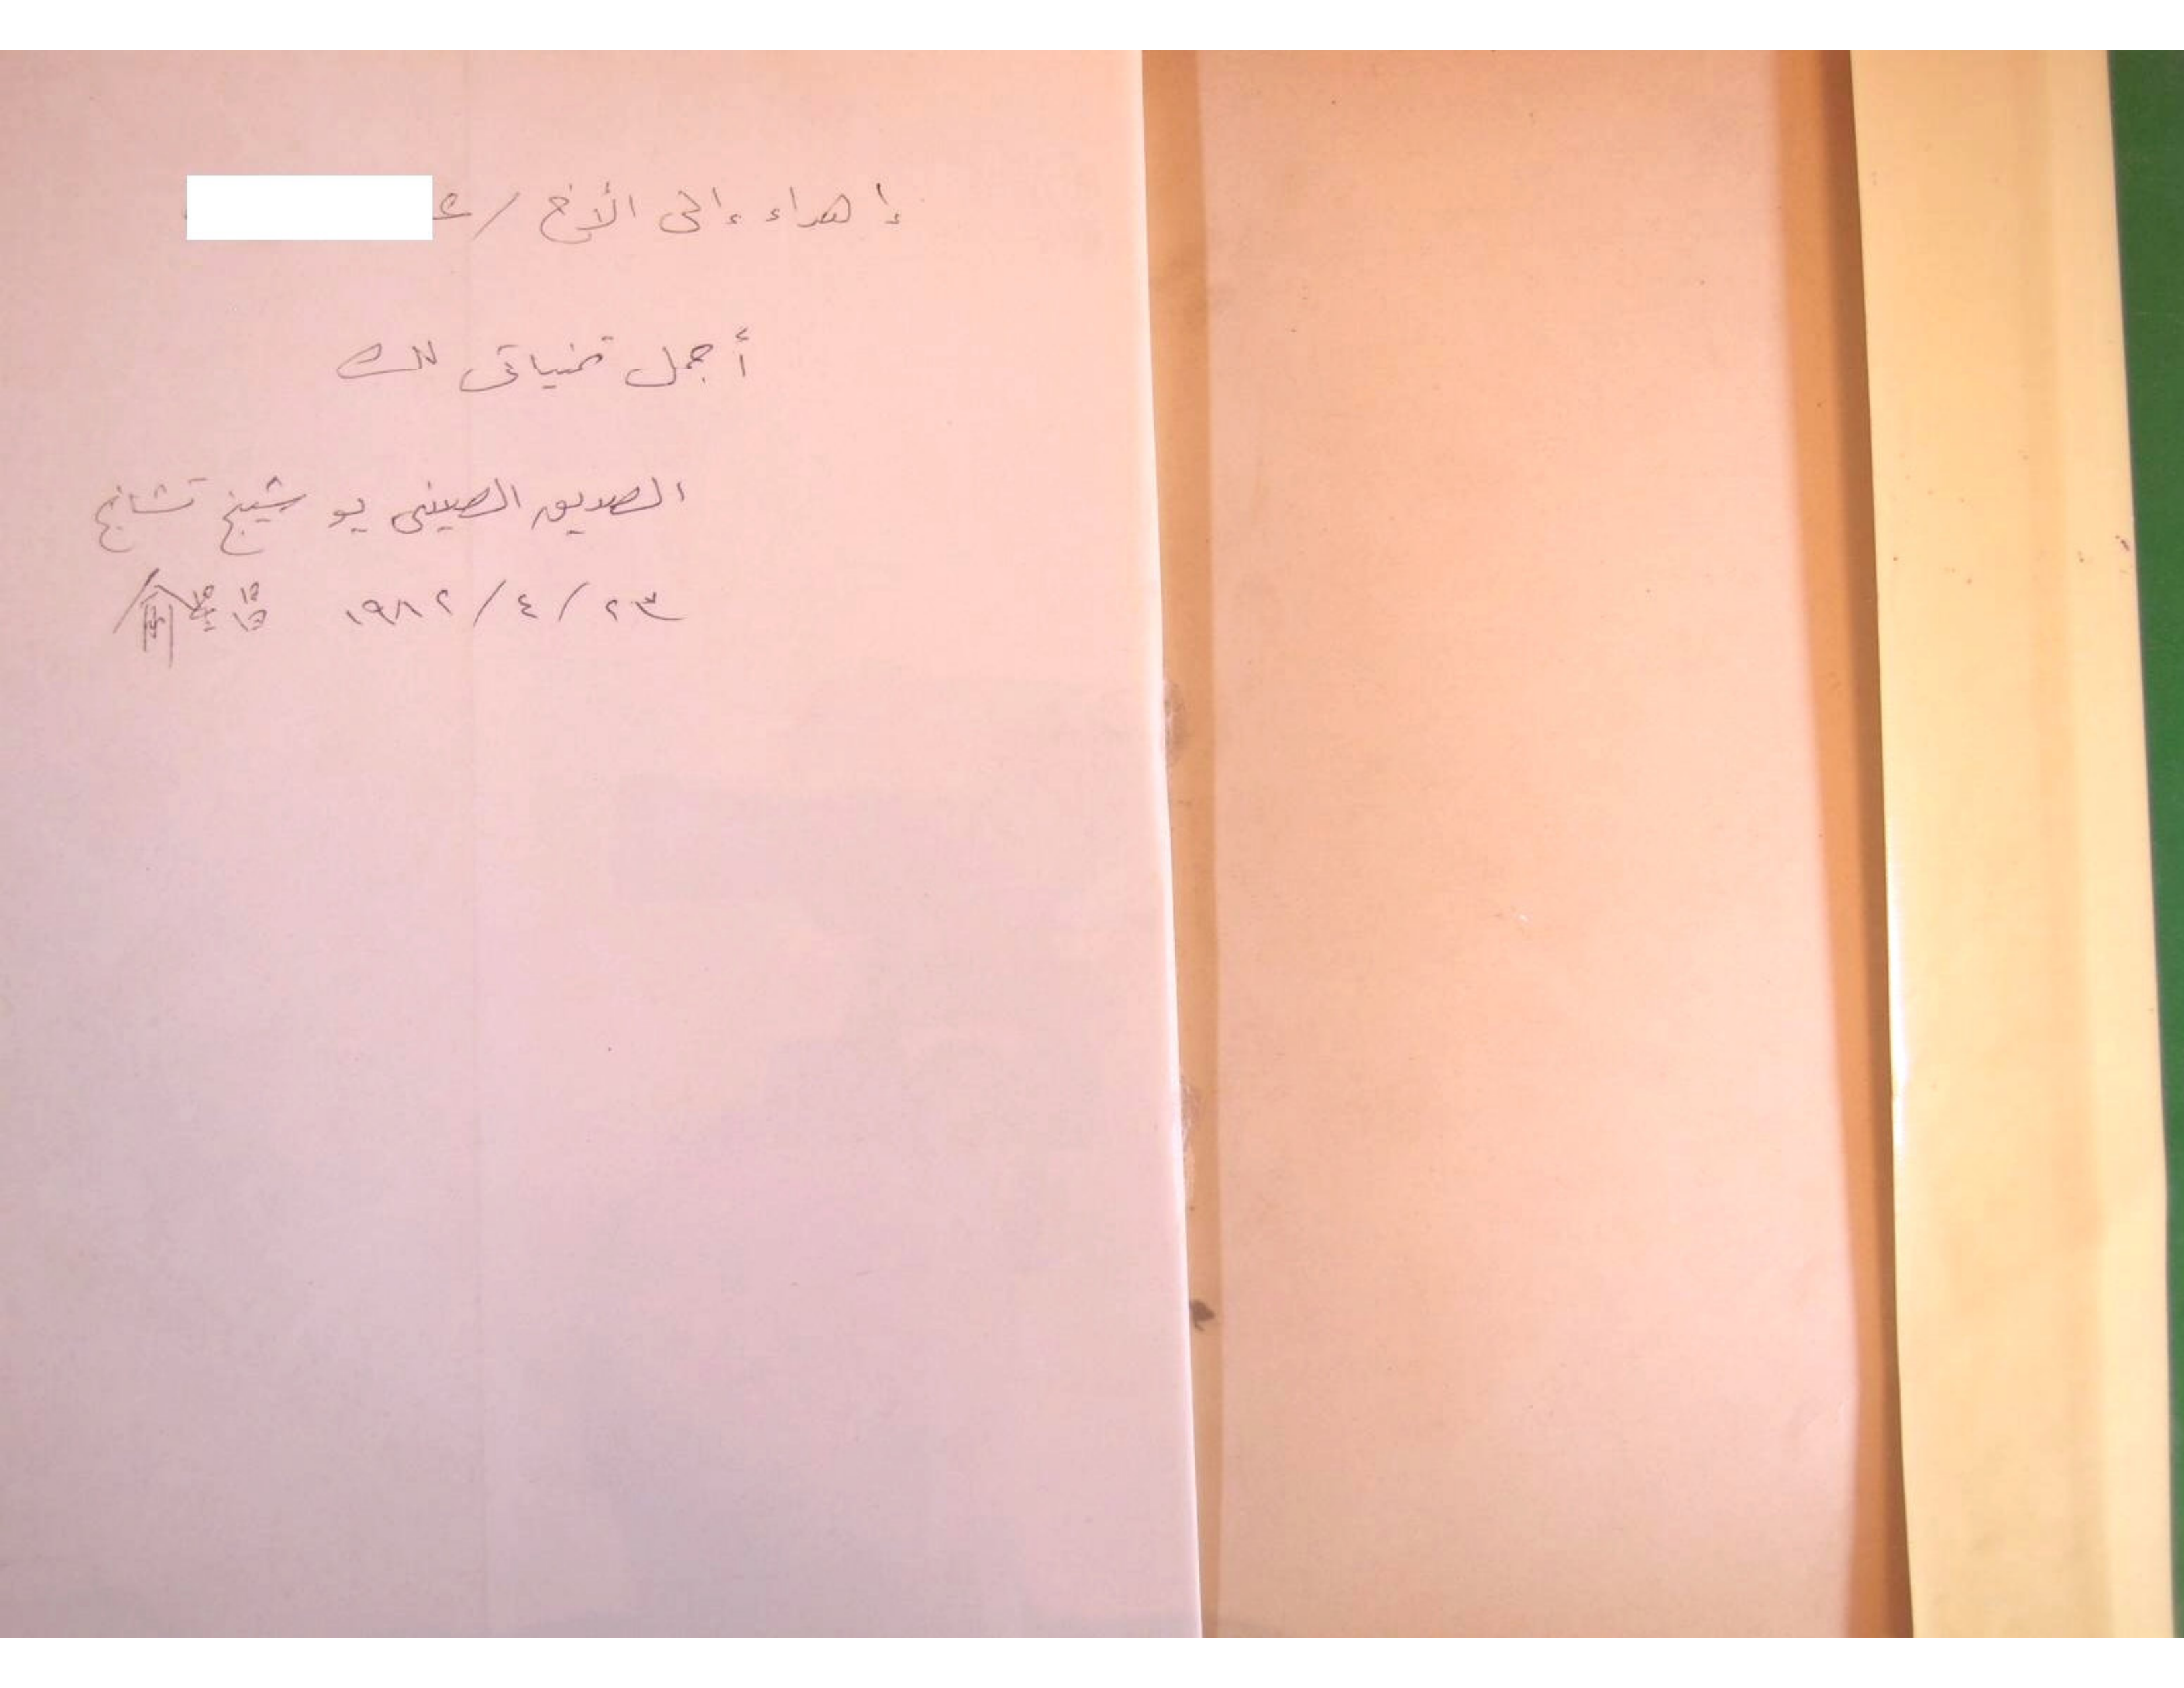 إهداء إلى الأخ /
أجمل تمنياتى لك
الصديق الصينى يو شينغ تشانغ
٢٣/٤/١٩٨٢